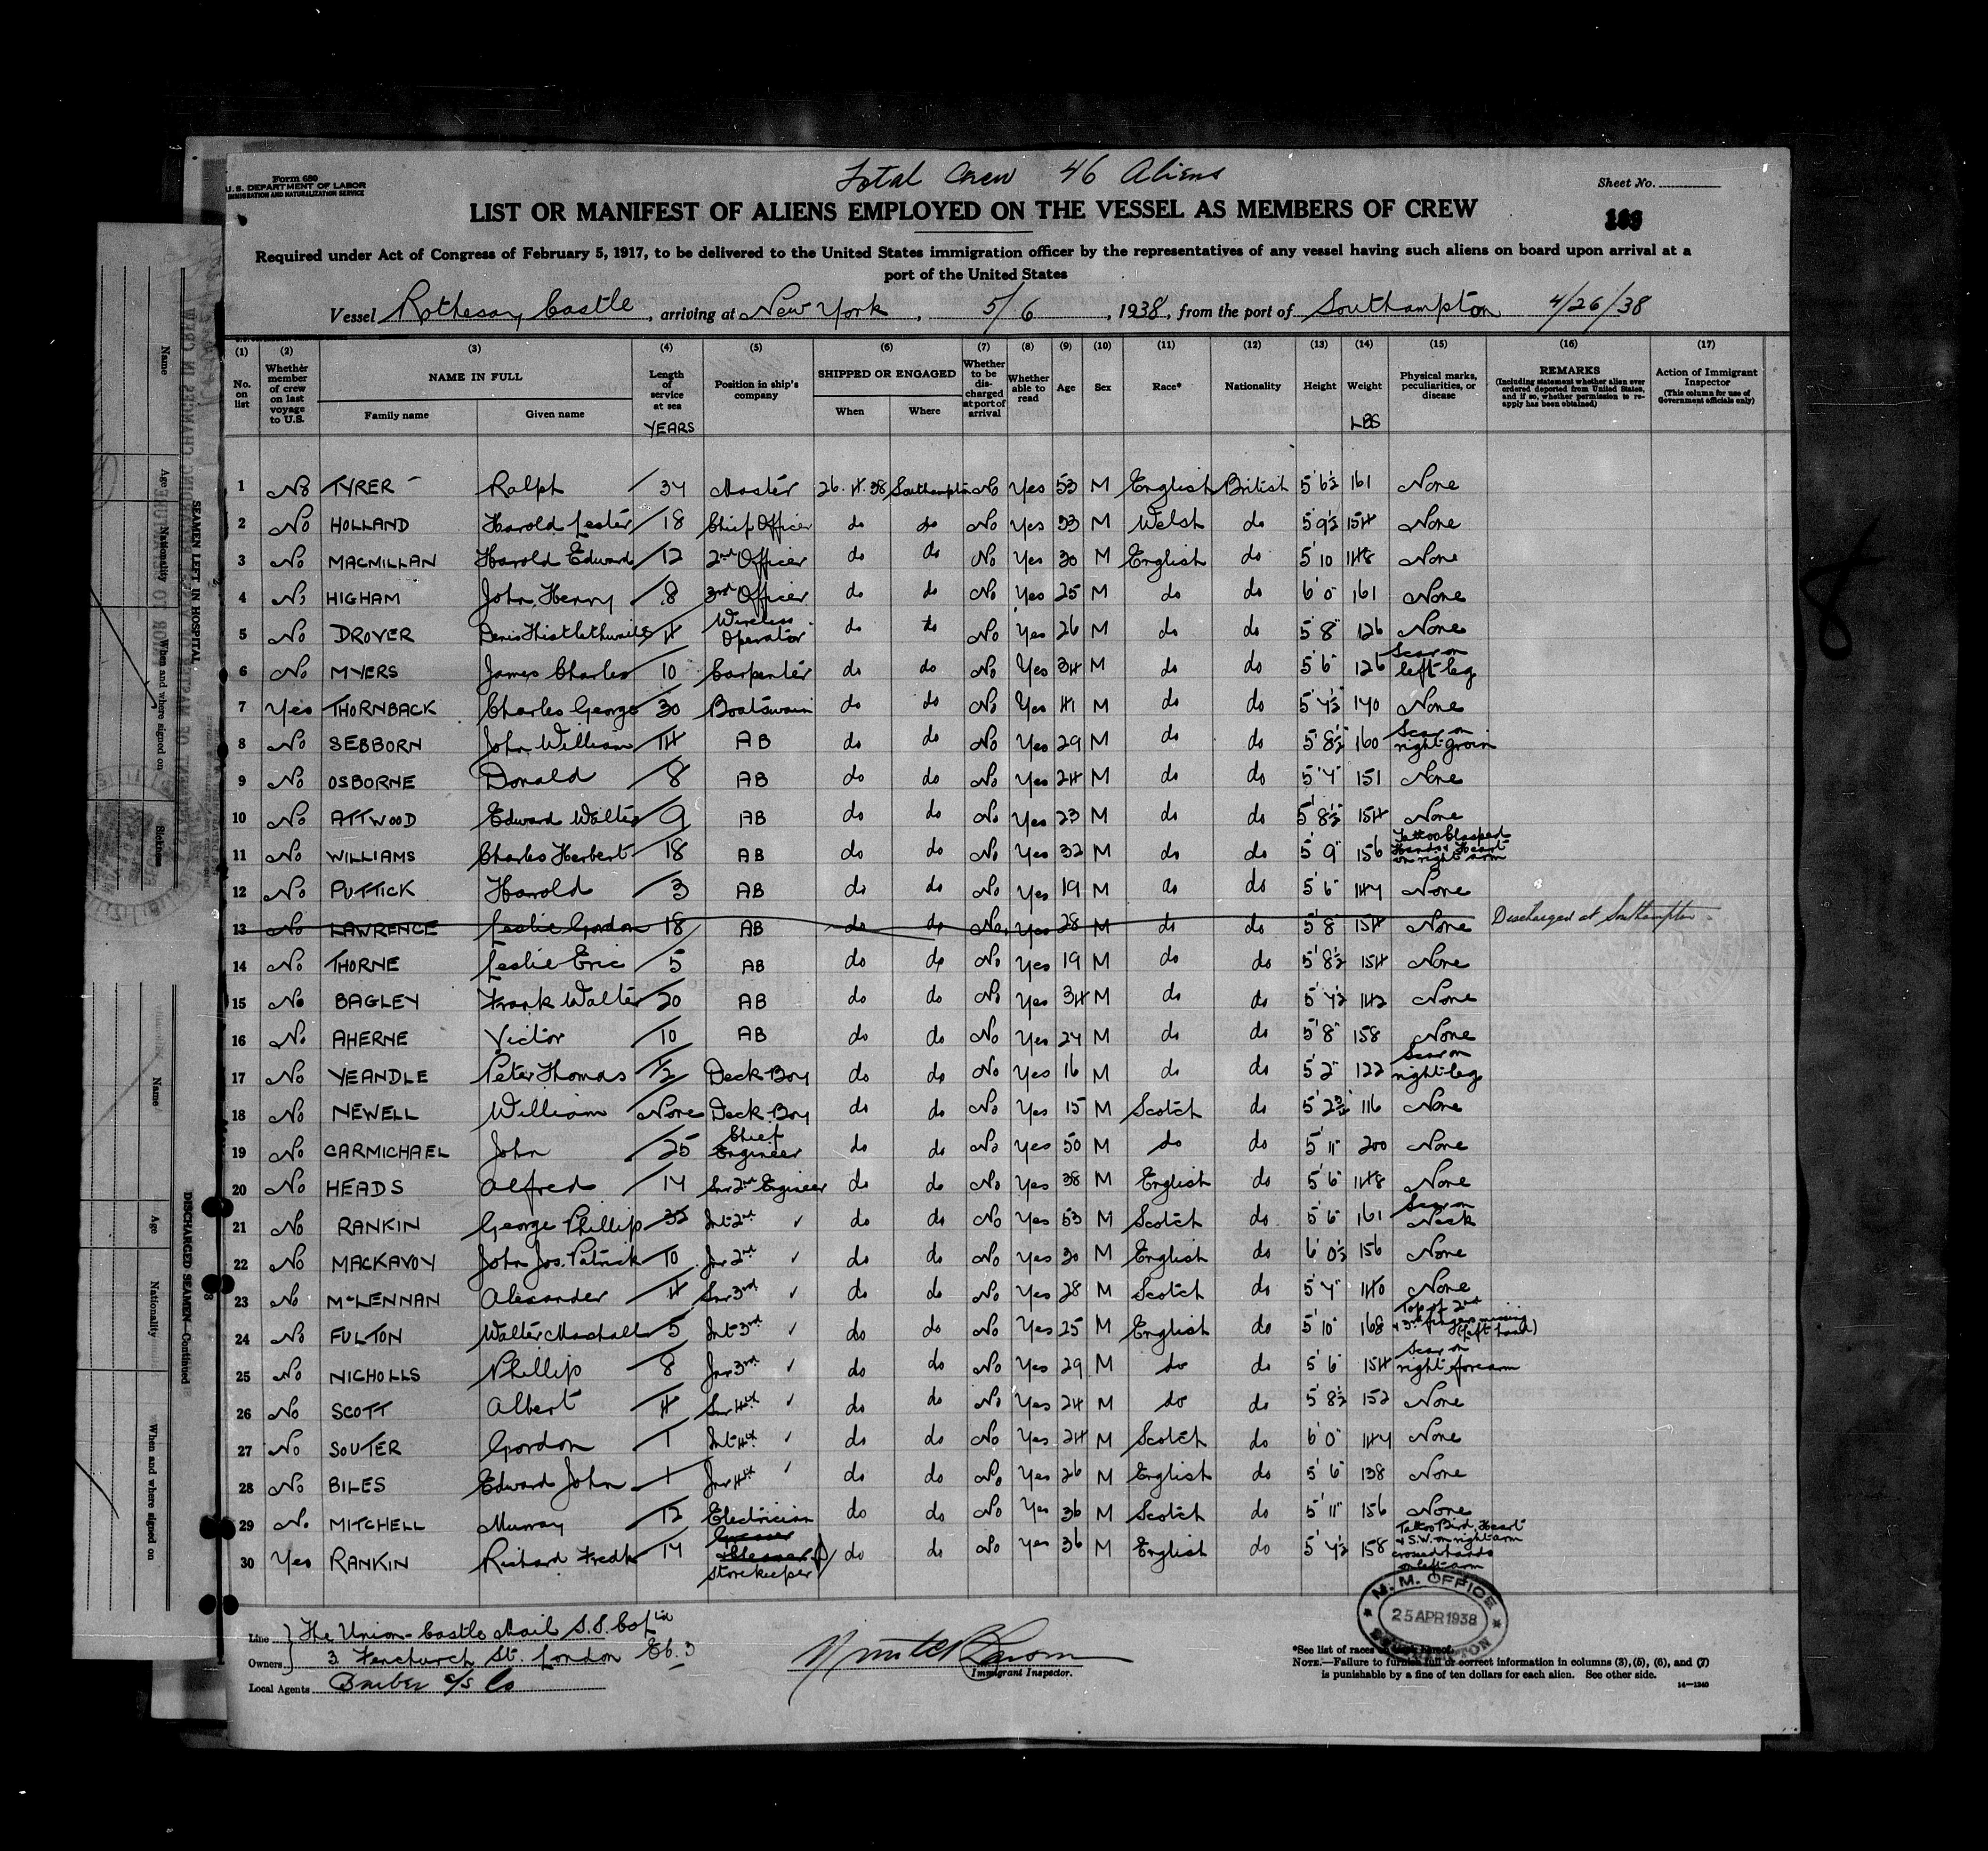 Total Crew 46 Aliens
Form 680
U. S. DEPARTMENT OF LABOR
IMMIGRATION AND NATURALIZATION SERVICE
Sheet No.
LIST OR MANIFEST OF ALIENS EMPLOYED ON THE VESSEL AS MEMBERS OF CREW
Required under Act of Congress of February 5, 1917, to be delivered to the United States immigration officer by the representatives of any vessel having such aliens on board upon arrival at a
port of the United States
Vessel Rothesay Castle, arriving at New York, 5/6, 1938, from the port of Southampton 4/26/38
(1) (2) (3) (4) (5) (6) (7) (8) (9) (10) (11) (12) (13) (14) (15) (16) (17)
No. on list
Whether member of crew on last voyage to U.S.
NAME IN FULL
Family name Given name
Length of service at sea
YEARS
Position in ship's company
SHIPPED OR ENGAGED
When Where
Whether to be discharged at port of arrival
Whether able to read
Age
Sex
Race*
Nationality
Height
Weight
LBS
Physical marks, peculiarities, or disease
REMARKS
(Including statement whether alien ever ordered deported from United States, and if so, whether permission to reapply has been obtained)
Action of Immigrant Inspector
(This column for use of Government officials only)
1 No TYRER Ralph 34 Master 26.4.38 Southampton No Yes 53 M English British 5'6½ 161 None
2 No HOLLAND Harold Lester 18 Chief Officer do do No Yes 33 M Welsh do 5'9½ 154 None
3 No MACMILLAN Harold Edward 12 2nd Officer do do No Yes 30 M English do 5'10 148 None
4 No HIGHAM John Henry 8 3rd Officer do do No Yes 25 M do do 6'0" 161 None
5 No DROVER Denis 4 Wireless Operator do do No Yes 26 M do do 5'8" 126 None
6 No MYERS James Charles 10 Carpenter do do No Yes 34 M do do 5'6" 126 Scar on left leg
7 Yes THORNBACK Charles George 30 Boatswain do do No Yes 41 M do do 5'7½ 140 None
8 No SEBBORN John William 14 AB do do No Yes 29 M do do 5'8½ 160 Scar on right groin
9 No OSBORNE Donald 8 AB do do No Yes 24 M do do 5'7" 151 None
10 No ATTWOOD Edward Walter 9 AB do do No Yes 23 M do do 5'8½" 154 None
11 No WILLIAMS Charles Herbert 18 AB do do No Yes 32 M do do 5'9" 156 Tattoo Clasped Hands & Heart on right arm
12 No PUTTICK Harold 3 AB do do No Yes 19 M do do 5'6" 147 None
13 No LAWRENCE Leslie Gordon 18 AB do do No Yes 28 M do do 5'8" 154 None Discharged at Southampton
14 No THORNE Leslie Eric 5 AB do do No Yes 19 M do do 5'8½ 154 None
15 No BAGLEY Frank Walter 20 AB do do No Yes 34 M do do 5'7½ 142 None
16 No AHERNE Victor 10 AB do do No Yes 27 M do do 5'8" 158 None
17 No YEANDLE Peter Thomas ½ Deck Boy do do No Yes 16 M do do 5'2" 122 Scar on right leg
18 No NEWELL William None Deck Boy do do No Yes 15 M Scotch do 5'2¾ 116 None
19 No CARMICHAEL John 25 Chief Engineer do do No Yes 50 M do do 5'11" 200 None
20 No HEADS Alfred 17 Snr 2nd Engineer do do No Yes 38 M English do 5'6" 148 None
21 No RANKIN George Phillip 32 Int 2nd ✓ do do No Yes 53 M Scotch do 5'6" 161 Scar on Neck
22 No MACKAVOY John Jos. Patrick 10 Jnr 2nd ✓ do do No Yes 30 M English do 6'0½ 156 None
23 No McLENNAN Alexander 4 Snr 3rd ✓ do do No Yes 28 M Scotch do 5'7" 140 None
24 No FULTON Walter Marshall 5 Int 3rd ✓ do do No Yes 25 M English do 5'10" 168 Top of 2nd & 3rd fingers missing (left hand)
25 No NICHOLLS Phillip 8 Jnr 3rd ✓ do do No Yes 29 M do do 5'6" 154 Scar on right forearm
26 No SCOTT Albert 4 Snr 4th ✓ do do No Yes 24 M do do 5'8½ 152 None
27 No SOUTER Gordon 1 Int 4th ✓ do do No Yes 24 M Scotch do 6'0" 147 None
28 No BILES Edward John 1 Jnr 4th ✓ do do No Yes 26 M English do 5'6" 138 None
29 No MITCHELL Murray 12 Electrician do do No Yes 36 M Scotch do 5'11" 156 None
30 Yes RANKIN Richard Fredk 14 Greaser Storekeeper do do No Yes 36 M English do 5'7½ 158 Tattoo Bird, Heart & S.W. on right arm crossed hands on left arm
Line The Union-Castle Mail S.S. Co Ltd
Owners 3 Fenchurch St. London EC.3
Local Agents Barber S/S Co
Immigrant Inspector.
M. M. OFFICE
25 APR 1938
*See list of races
NOTE.—Failure to furnish full or correct information in columns (3), (5), (6), and (7)
is punishable by a fine of ten dollars for each alien. See other side.
14—1240
8
SEAMEN LEFT IN HOSPITAL
Name Age Nationality When and where signed on Sickness
DISCHARGED SEAMEN—Continued
Name Age Nationality When and where signed on